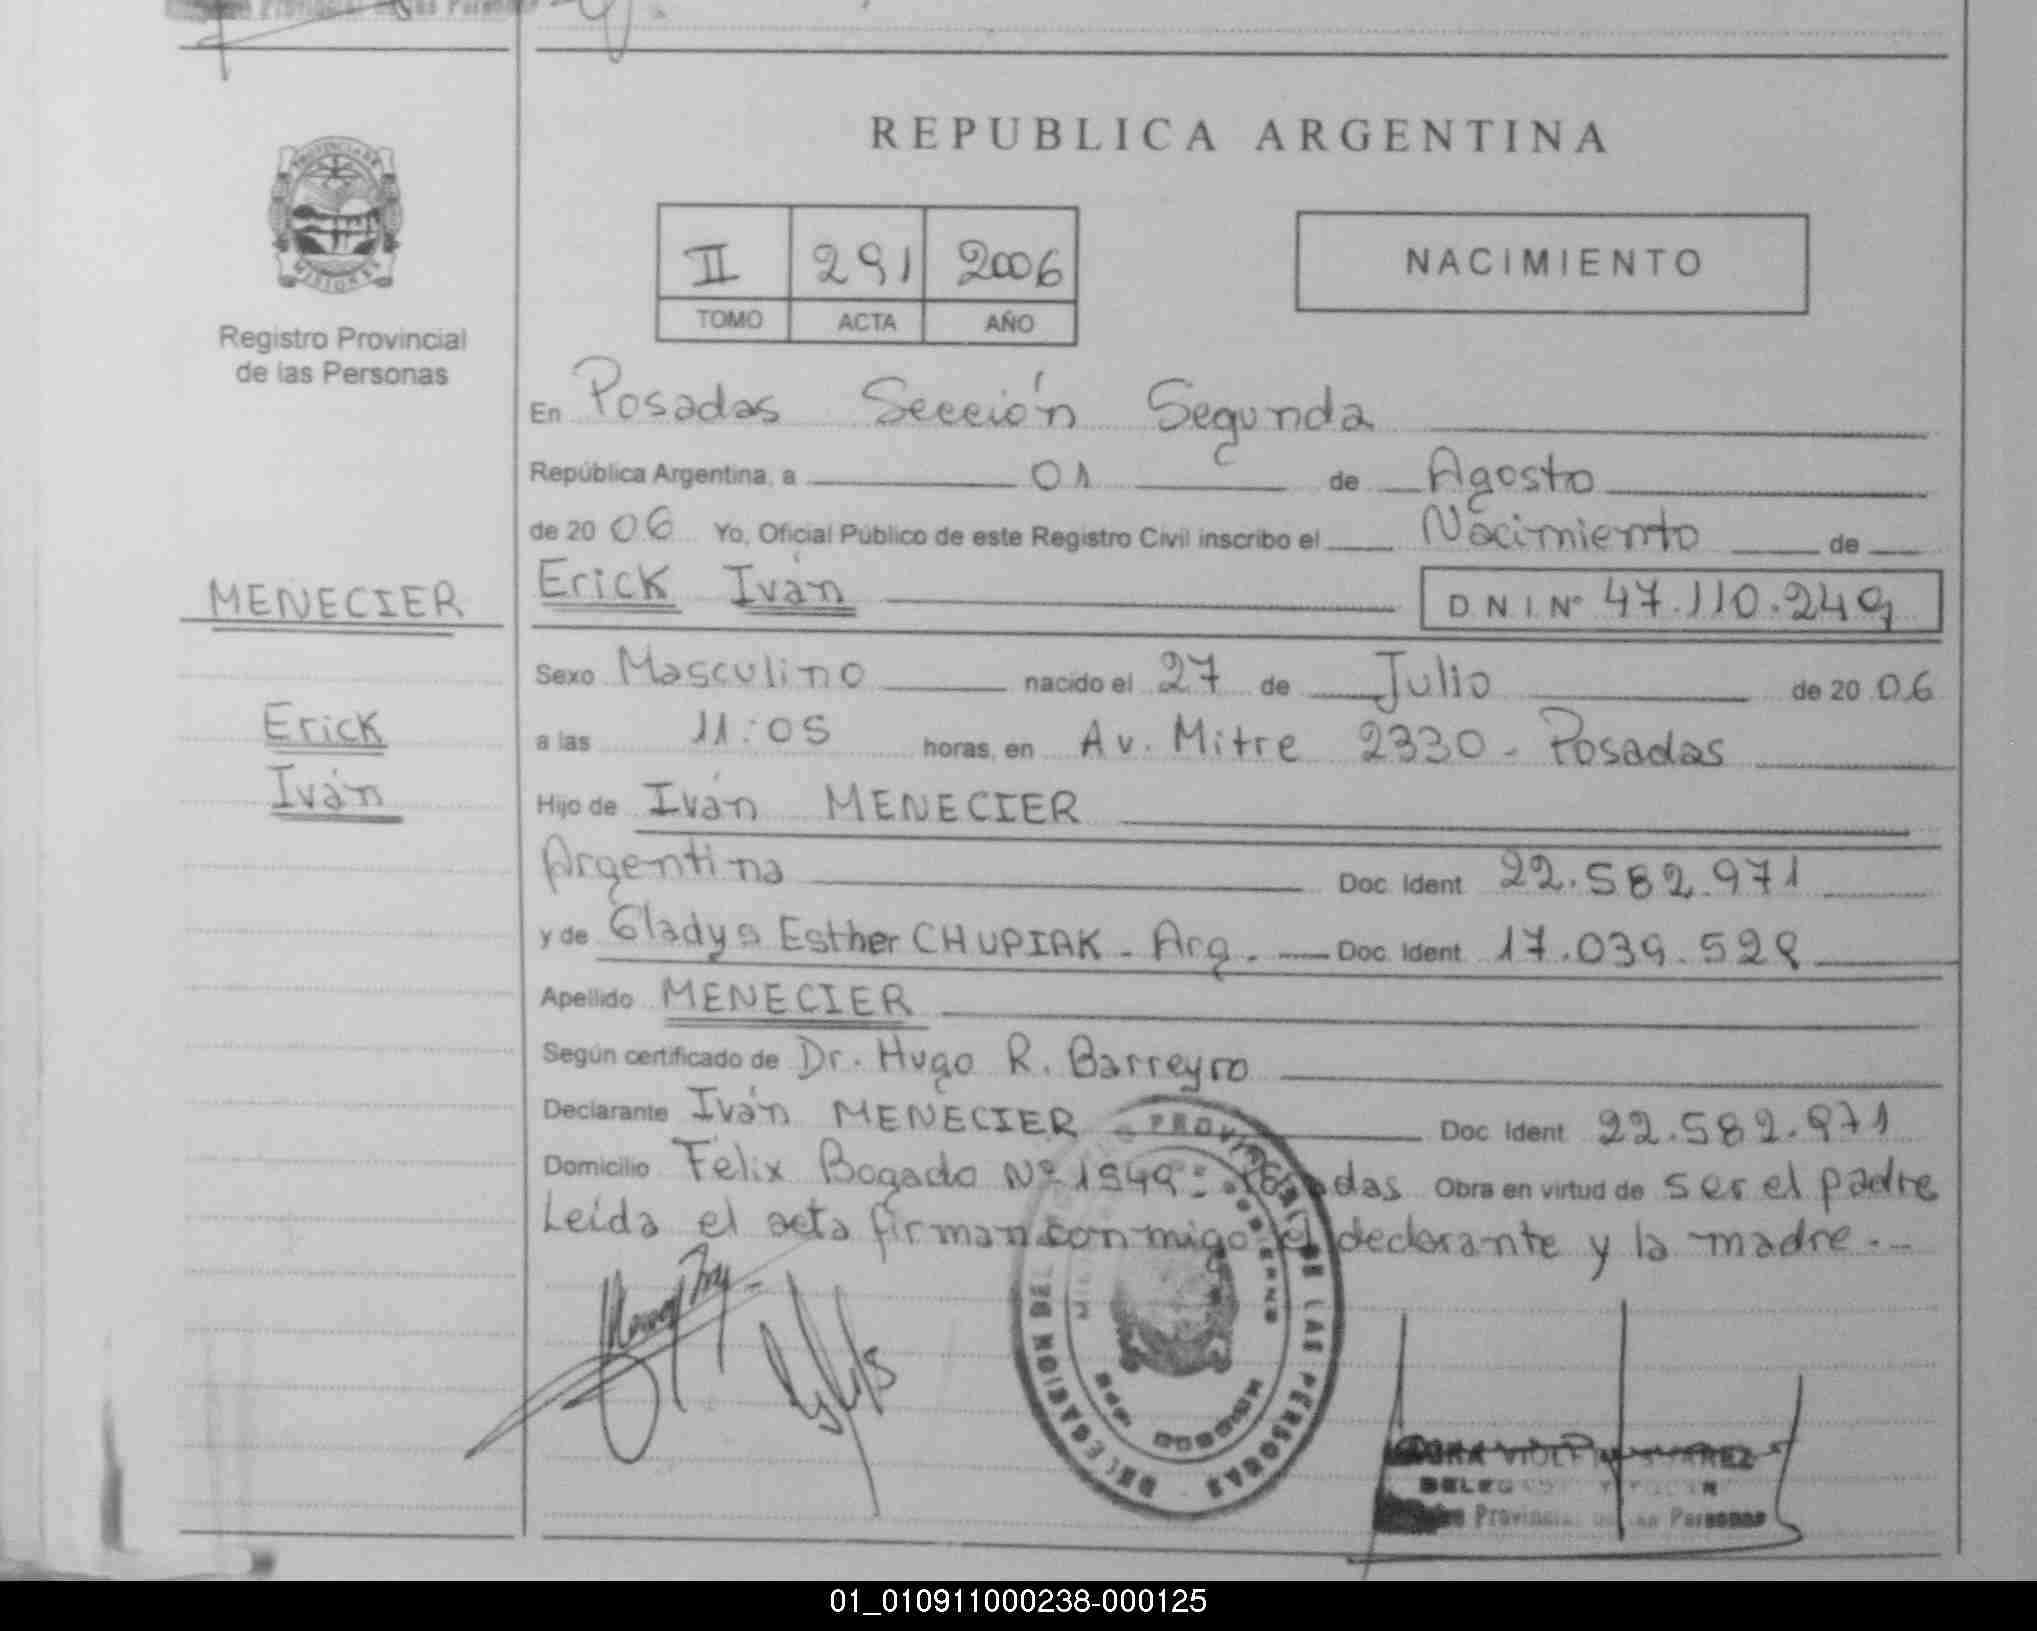 REPUBLICA ARGENTINA
PROVINCIA DE
MISIONES
Registro Provincial
de las Personas
II 291 2006
TOMO ACTA AÑO
NACIMIENTO
En Posadas Sección Segunda
República Argentina, a 01 de Agosto
de 2006 Yo, Oficial Público de este Registro Civil inscribo el Nacimiento de
MENECIER
Erick Iván D.N.I. Nº 47.110.249
Erick
Iván
Sexo Masculino nacido el 27 de Julio de 2006
a las 11:05 horas, en Av. Mitre 2330 - Posadas
Hijo de Iván MENECIER
Argentina Doc. Ident 22.582.971
y de Gladys Esther CHUPIAK - Arg. Doc. Ident 17.039.528
Apellido MENECIER
Según certificado de Dr. Hugo R. Barreyro
Declarante Iván MENECIER Doc. Ident 22.582.971
Domicilio Felix Bogado Nº 1549 - Posadas Obra en virtud de ser el padre
Leída el acta firman conmigo el declarante y la madre.--
PROVINCIAL DE LAS PERSONAS
Provincial de las Personas
01_010911000238-000125